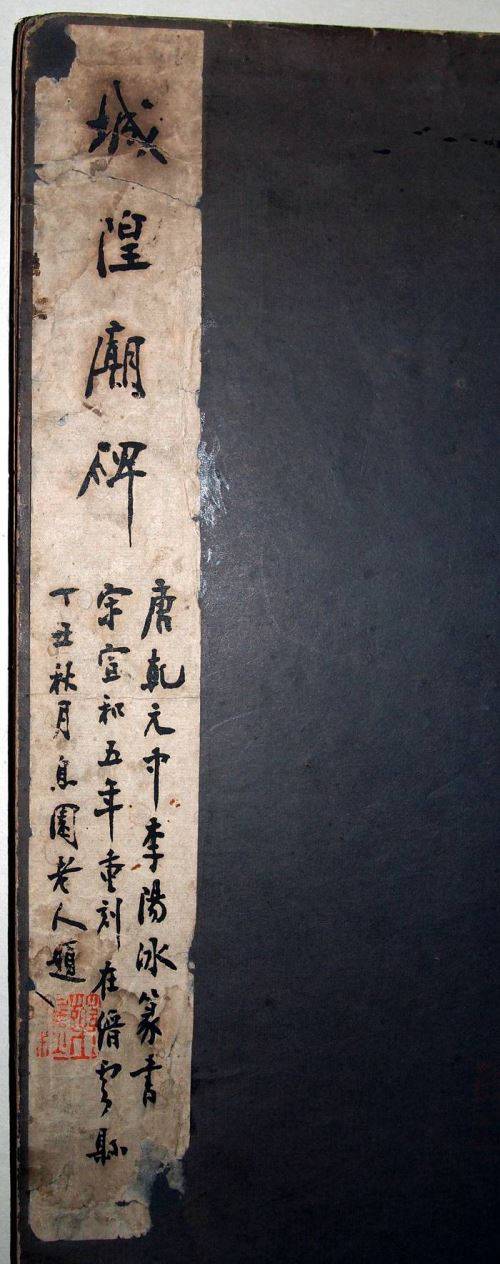 城隍廟碑
唐乾元中李陽冰篆書
宗宣和五年重刻在縉雲縣
丁丑秋月息園老人題